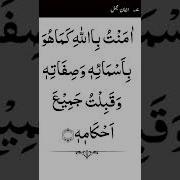 ایمان مجمل
اٰمَنْتُ بِاللهِ كَمَا هُوَ
بِاَسْمَائِهٖ وَصِفَاتِهٖ
وَقَبِلْتُ جَمِيْعَ
اَحْكَامِهٖ